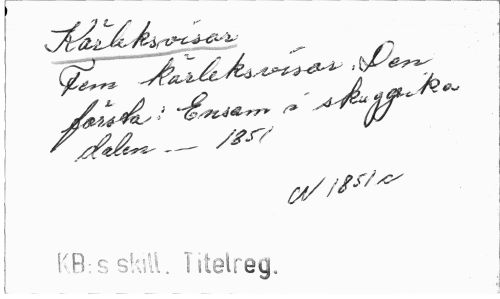 Kärleksvisor
Fem kärleksvisor. Den
första: Ensam i skuggrika
dalen — 1851
N 1851 c
KB:s skill. Titelreg.